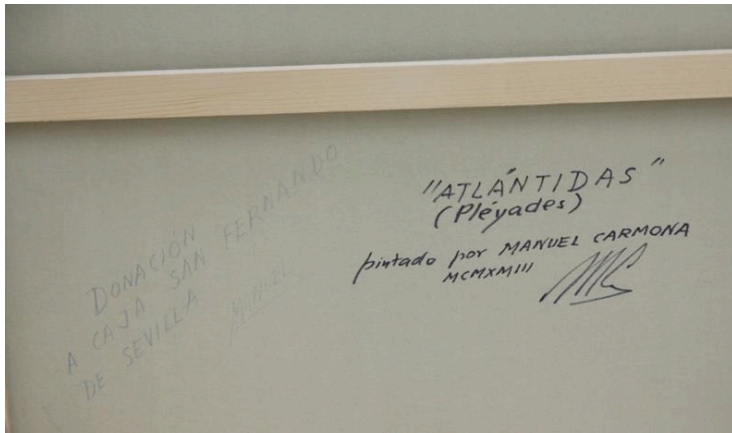 DONACIÓN
A CAJA SAN FERNANDO
DE SEVILLA
MANUEL
"ATLÁNTIDAS"
(Pléyades)
pintado por MANUEL CARMONA
MCMXMIII